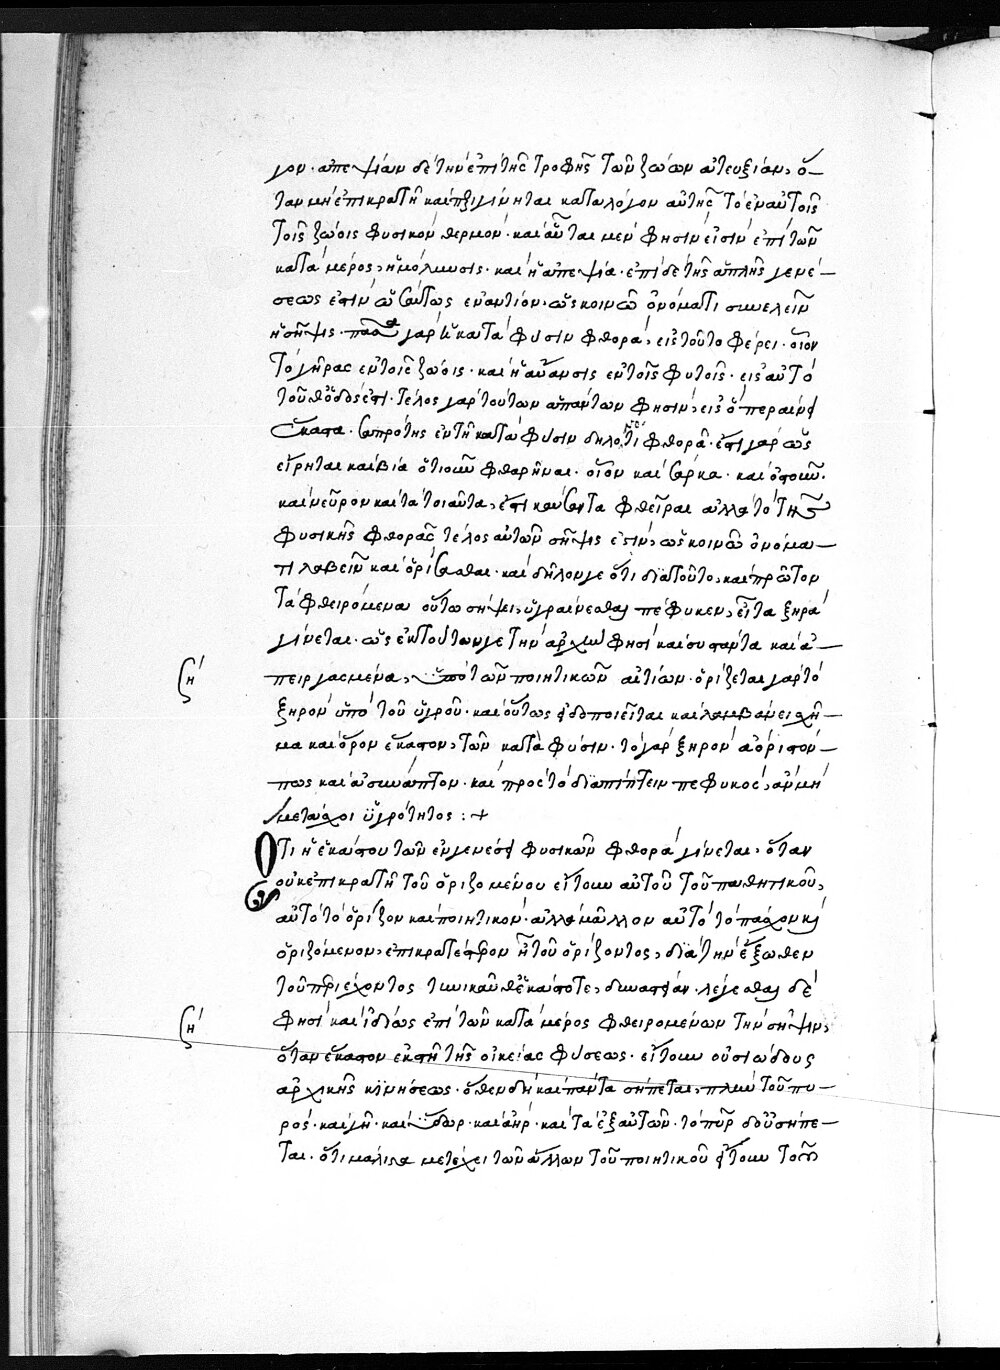 γον· ἀπεψίαν δὲ τὴν ἐπὶ τῆς τροφῆς τῶν ζώων ἀτευξίαν, ὅ-
ταν μὴ ἐπικρατῆ καὶ περιγίνηται κατὰ λόγον αὐτῆς τὸ ἐν αὐτοῖς
τοῖς ζώοις φυσικὸν θερμόν· καὶ αὗται μὲν φησὶν εἰσὶν ἐπὶ τῶν
κατὰ μέρος, ἡ μόλυνσις· καὶ ἡ ἀπεψία· ἐπὶ δὲ τῆς ἁπλῆς γενέ-
σεως ἐστὶν ὡσαύτως ἐναντίον· ὡς κοινῶ ὀνόματι συνελεῖν
ἡ σῆψις· πᾶσα γὰρ ἡ κατὰ φύσιν φθορά, εἰς τοῦτο φέρει· οἷον
τὸ γῆρας ἐν τοῖς ζώοις· καὶ ἡ αὔανσις ἐν τοῖς φυτοῖς· εἰς αὐτὸ
τοῦθ' ὁδός ἐστι· τέλος γὰρ τούτων ἁπάντων φησὶν, εἰς ὃ περαίνει
ἕκαστα· σαπρότης ἐν τῆ κατὰ φύσιν δηλονότι φθορᾶ· ἔστι γὰρ ὡς
εἴρηται καὶ βία ὁτιοῦν φθαρῆναι· οἷον καὶ σάρκα· καὶ ὀστοῦν·
καὶ νεῦρον καὶ τὰ τοιαῦτα, ἔστι καύσαντα φθεῖραι ἀλλὰ τὸ τῆς
φυσικῆς φθορᾶς τέλος αὐτῶν σῆψις ἐστὶν, ὡς κοινῶ ὀνόμα-
τι λαβεῖν καὶ ὁρίσασθαι· καὶ δῆλόν γε ὅτι διατοῦτο, καὶ πρῶτον
τὰ φθειρόμενα οὕτω σήψει, ὑγραίνεσθαι πέφυκεν, εἶτα ξηρὰ
γίνεται· ὡς ἐκ τούτων γε τὴν ἀρχὴν φησὶ καὶ συστάντα καὶ ἀ-
πειργασμένα, ὑπὸ τῶν ποιητικῶν αἰτίων· ὁρίζεται γὰρ τὸ
ξηρὸν ὑπὸ τοῦ ὑγροῦ· καὶ οὕτως εἰδοποιεῖται καὶ λαμβάνει σχῆ-
μα καὶ ὅρον ἕκαστον, τῶν κατὰ φύσιν· τὸ γὰρ ξηρὸν ἀόριστόν-
πως καὶ ἀσυνάπτον· καὶ πρὸς τὸ διαπίπτειν πεφυκὸς, ἂν μὴ
μετάσχοι ὑγρότητος :+
Ὅτι ἡ ἑκάστου τῶν ἐν γενέσει φυσικῶν φθορὰ γίνεται, ὅταν
οὐκ ἐπικρατῆ τοῦ ὁριζομένου εἴτουν αὐτοῦ τοῦ παθητικοῦ,
αὐτὸ τὸ ὁρίζον καὶ ποιητικόν· ἀλλὰ μᾶλλον αὐτὸ τὸ πάσχον καὶ
ὁριζόμενον, ἐπικρατέστερον ἦ τοῦ ὁρίζοντος, διὰ τὴν ἔξωθεν
τοῦ περιέχοντος δύναμιν· λέγεσθαι δέ
φησὶ καὶ ἰδίως ἐπὶ τῶν κατὰ μέρος φθειρομένων τὴν σῆψιν,
ὅταν ἕκαστον ἐκστῆ τῆς οἰκείας φύσεως· εἴτουν οὐσιώδους
ἀρχικῆς κινήσεως· ὅθεν δὴ καὶ πάντα σήπεται, πλὴν τοῦ πυ-
ρός· καὶ γῆ· καὶ ὕδωρ· καὶ ἀὴρ· καὶ τὰ ἐξ αὐτῶν· τὸ πῦρ δ' οὐ σήπε-
ται· ὅτι μάλιστα μετέχει τῶν ἄλλων τοῦ ποιητικοῦ εἴτουν τοῦ
ση΄
ση΄